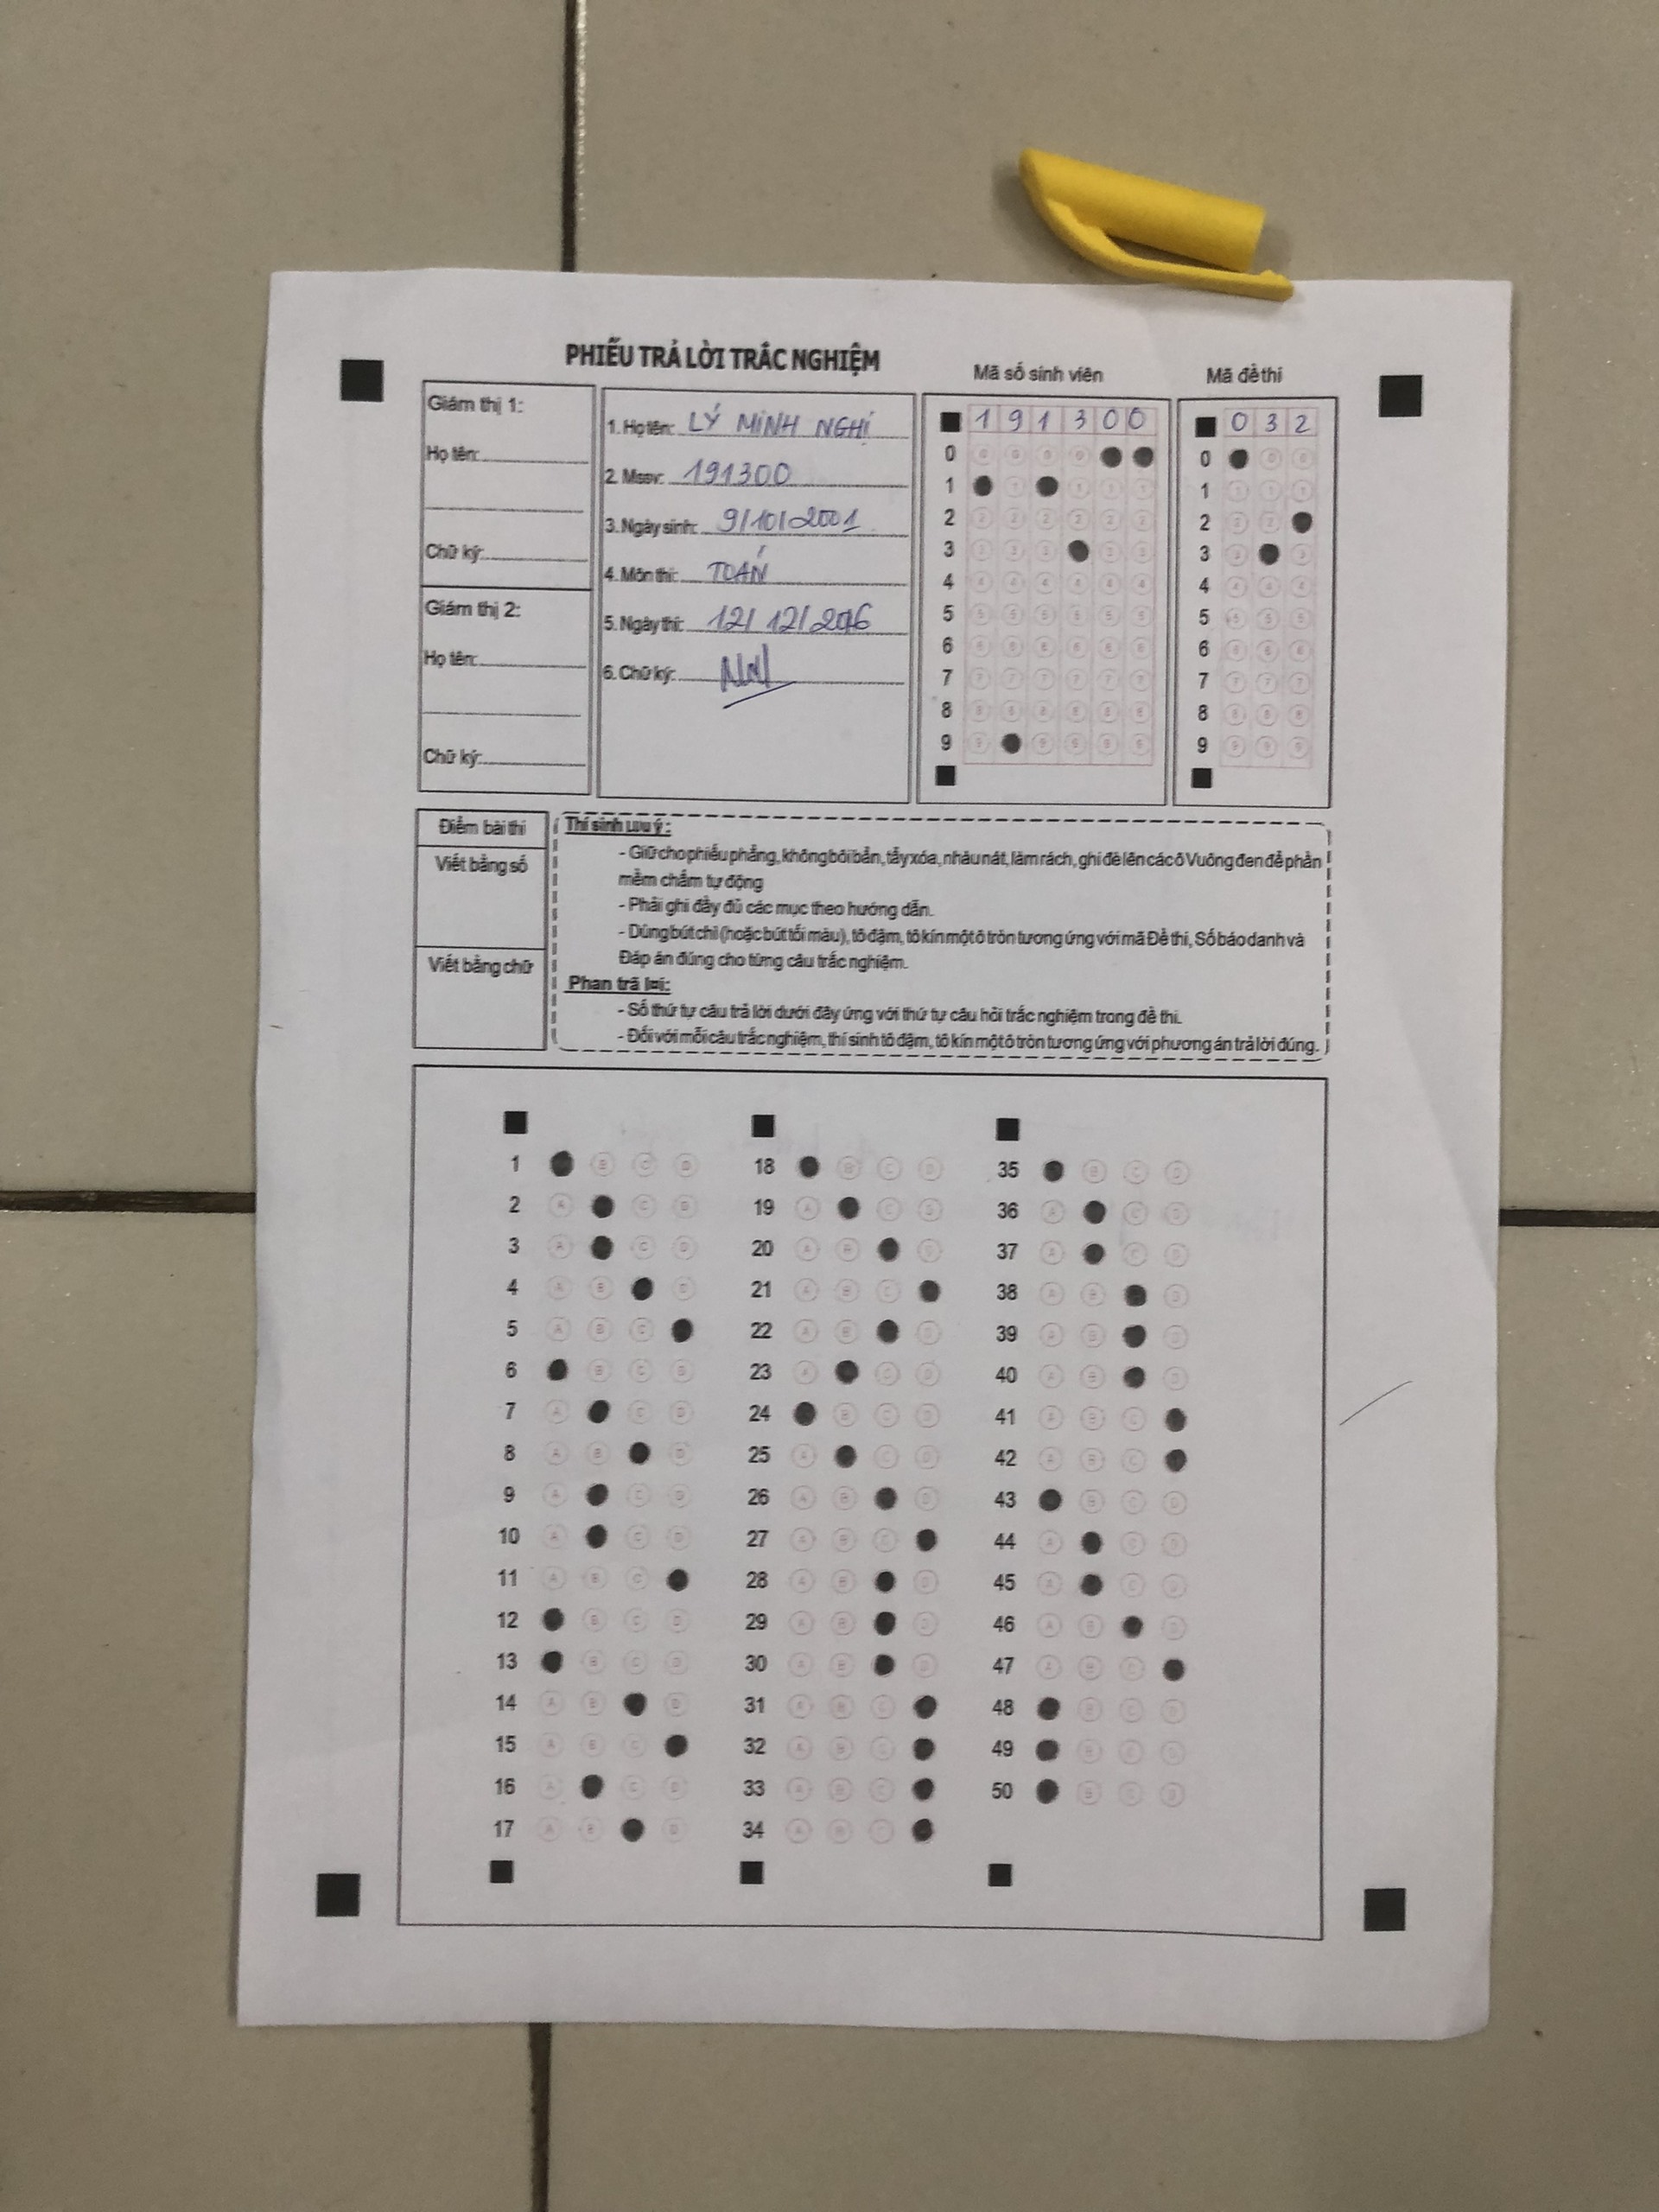 PHIẾU TRẢ LỜI TRẮC NGHIỆM
Giám thị 1:
Họ tên:
Chữ ký:
Giám thị 2:
Họ tên:
Chữ ký:
1. Họ tên: LÝ MINH NGHI
2. Mssv: 191300
3. Ngày sinh: 9/10/2001
4. Môn thi: TOÁN
5. Ngày thi: 12/12/2016
6. Chữ ký:
Mã số sinh viên
1 9 1 3 0 0
0
1
2
3
4
5
6
7
8
9
Mã đề thi
0 3 2
0
1
2
3
4
5
6
7
8
9
Điểm bài thi
Viết bằng số
Viết bằng chữ
Thí sinh lưu ý:
- Giữ cho phiếu phẳng, không bôi bẩn, tẩy xóa, nhàu nát, làm rách, ghi đè lên các ô Vuông đen để phần
mềm chấm tự động
- Phải ghi đầy đủ các mục theo hướng dẫn.
- Dùng bút chì (hoặc bút tối màu), tô đậm, tô kín một ô tròn tương ứng với mã Đề thi, Số báo danh và
Đáp án đúng cho từng câu trắc nghiệm.
Phan trã lơi:
- Số thứ tự câu trả lời dưới đây ứng với thứ tự câu hỏi trắc nghiệm trong đề thi.
- Đối với mỗi câu trắc nghiệm, thí sinh tô đậm, tô kín một ô tròn tương ứng với phương án trả lời đúng.
1 B C D
2 A C D
3 A C D
4 A B D
5 A B C
6 B C D
7 A C D
8 A B D
9 A C D
10 A C D
11 A B C
12 B C D
13 B C D
14 A B D
15 A B C
16 A C D
17 A B D
18 B C D
19 A C D
20 A B D
21 A B C
22 A B D
23 A C D
24 B C D
25 A C D
26 A B D
27 A B C
28 A B D
29 A B D
30 A B D
31 A B C
32 A B C
33 A B C
34 A B C
35 B C D
36 A C D
37 A C D
38 A B D
39 A B D
40 A B D
41 A B C
42 A B C
43 B C D
44 A C D
45 A C D
46 A B D
47 A B C
48 B C D
49 B C D
50 B C D